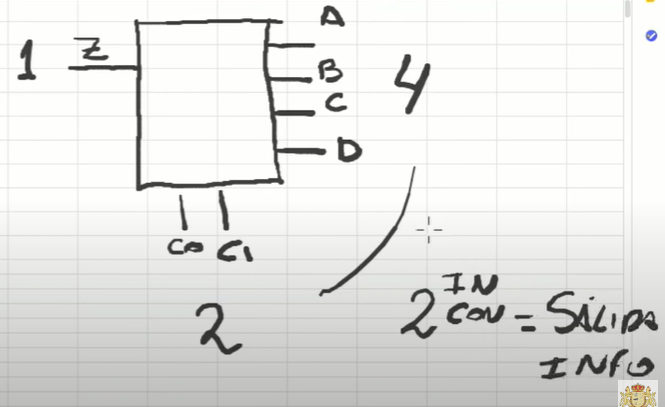 A
1 Z
B
4
C
D
C0 C1
2
2 IN CON = SALIDA
INFO